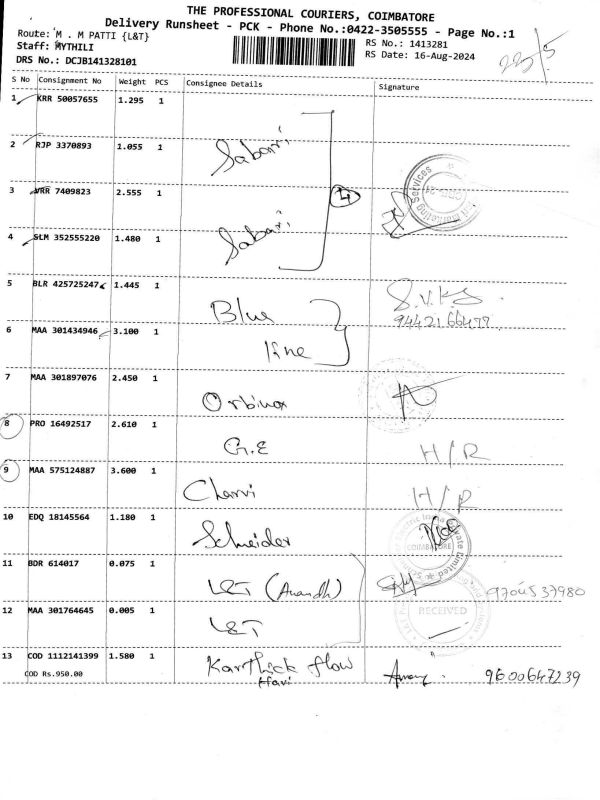 THE PROFESSIONAL COURIERS, COIMBATORE
Delivery Runsheet - PCK - Phone No.:0422-3505555 - Page No.:1
Route: M . M PATTI {L&T}
Staff: MYTHILI
DRS No.: DCJB141328101
RS No.: 1413281
RS Date: 16-Aug-2024
S No Consignment No Weight PCS Consignee Details Signature
1 KRR 50057655 1.295 1
2 RJP 3370893 1.055 1 Sabari
3 VRR 7409823 2.555 1
4
4 SLM 352555220 1.480 1 Sabari
5 BLR 425725247 1.445 1 Blue S.V.K.S
9442166477
6 MAA 301434946 3.100 1 line
7 MAA 301897076 2.450 1 Orbinox
8 PRO 16492517 2.610 1 G.E H/R
9 MAA 575124887 3.600 1 Charvi H/R
10 EDQ 18145564 1.180 1 Schneider
COIMBATORE
11 BDR 614017 0.075 1 L&T (Anandh)
RECEIVED
12 MAA 301764645 0.005 1 L&T
13 COD 1112141399 1.580 1 Karthick flow 9600647239
COD Rs.950.00